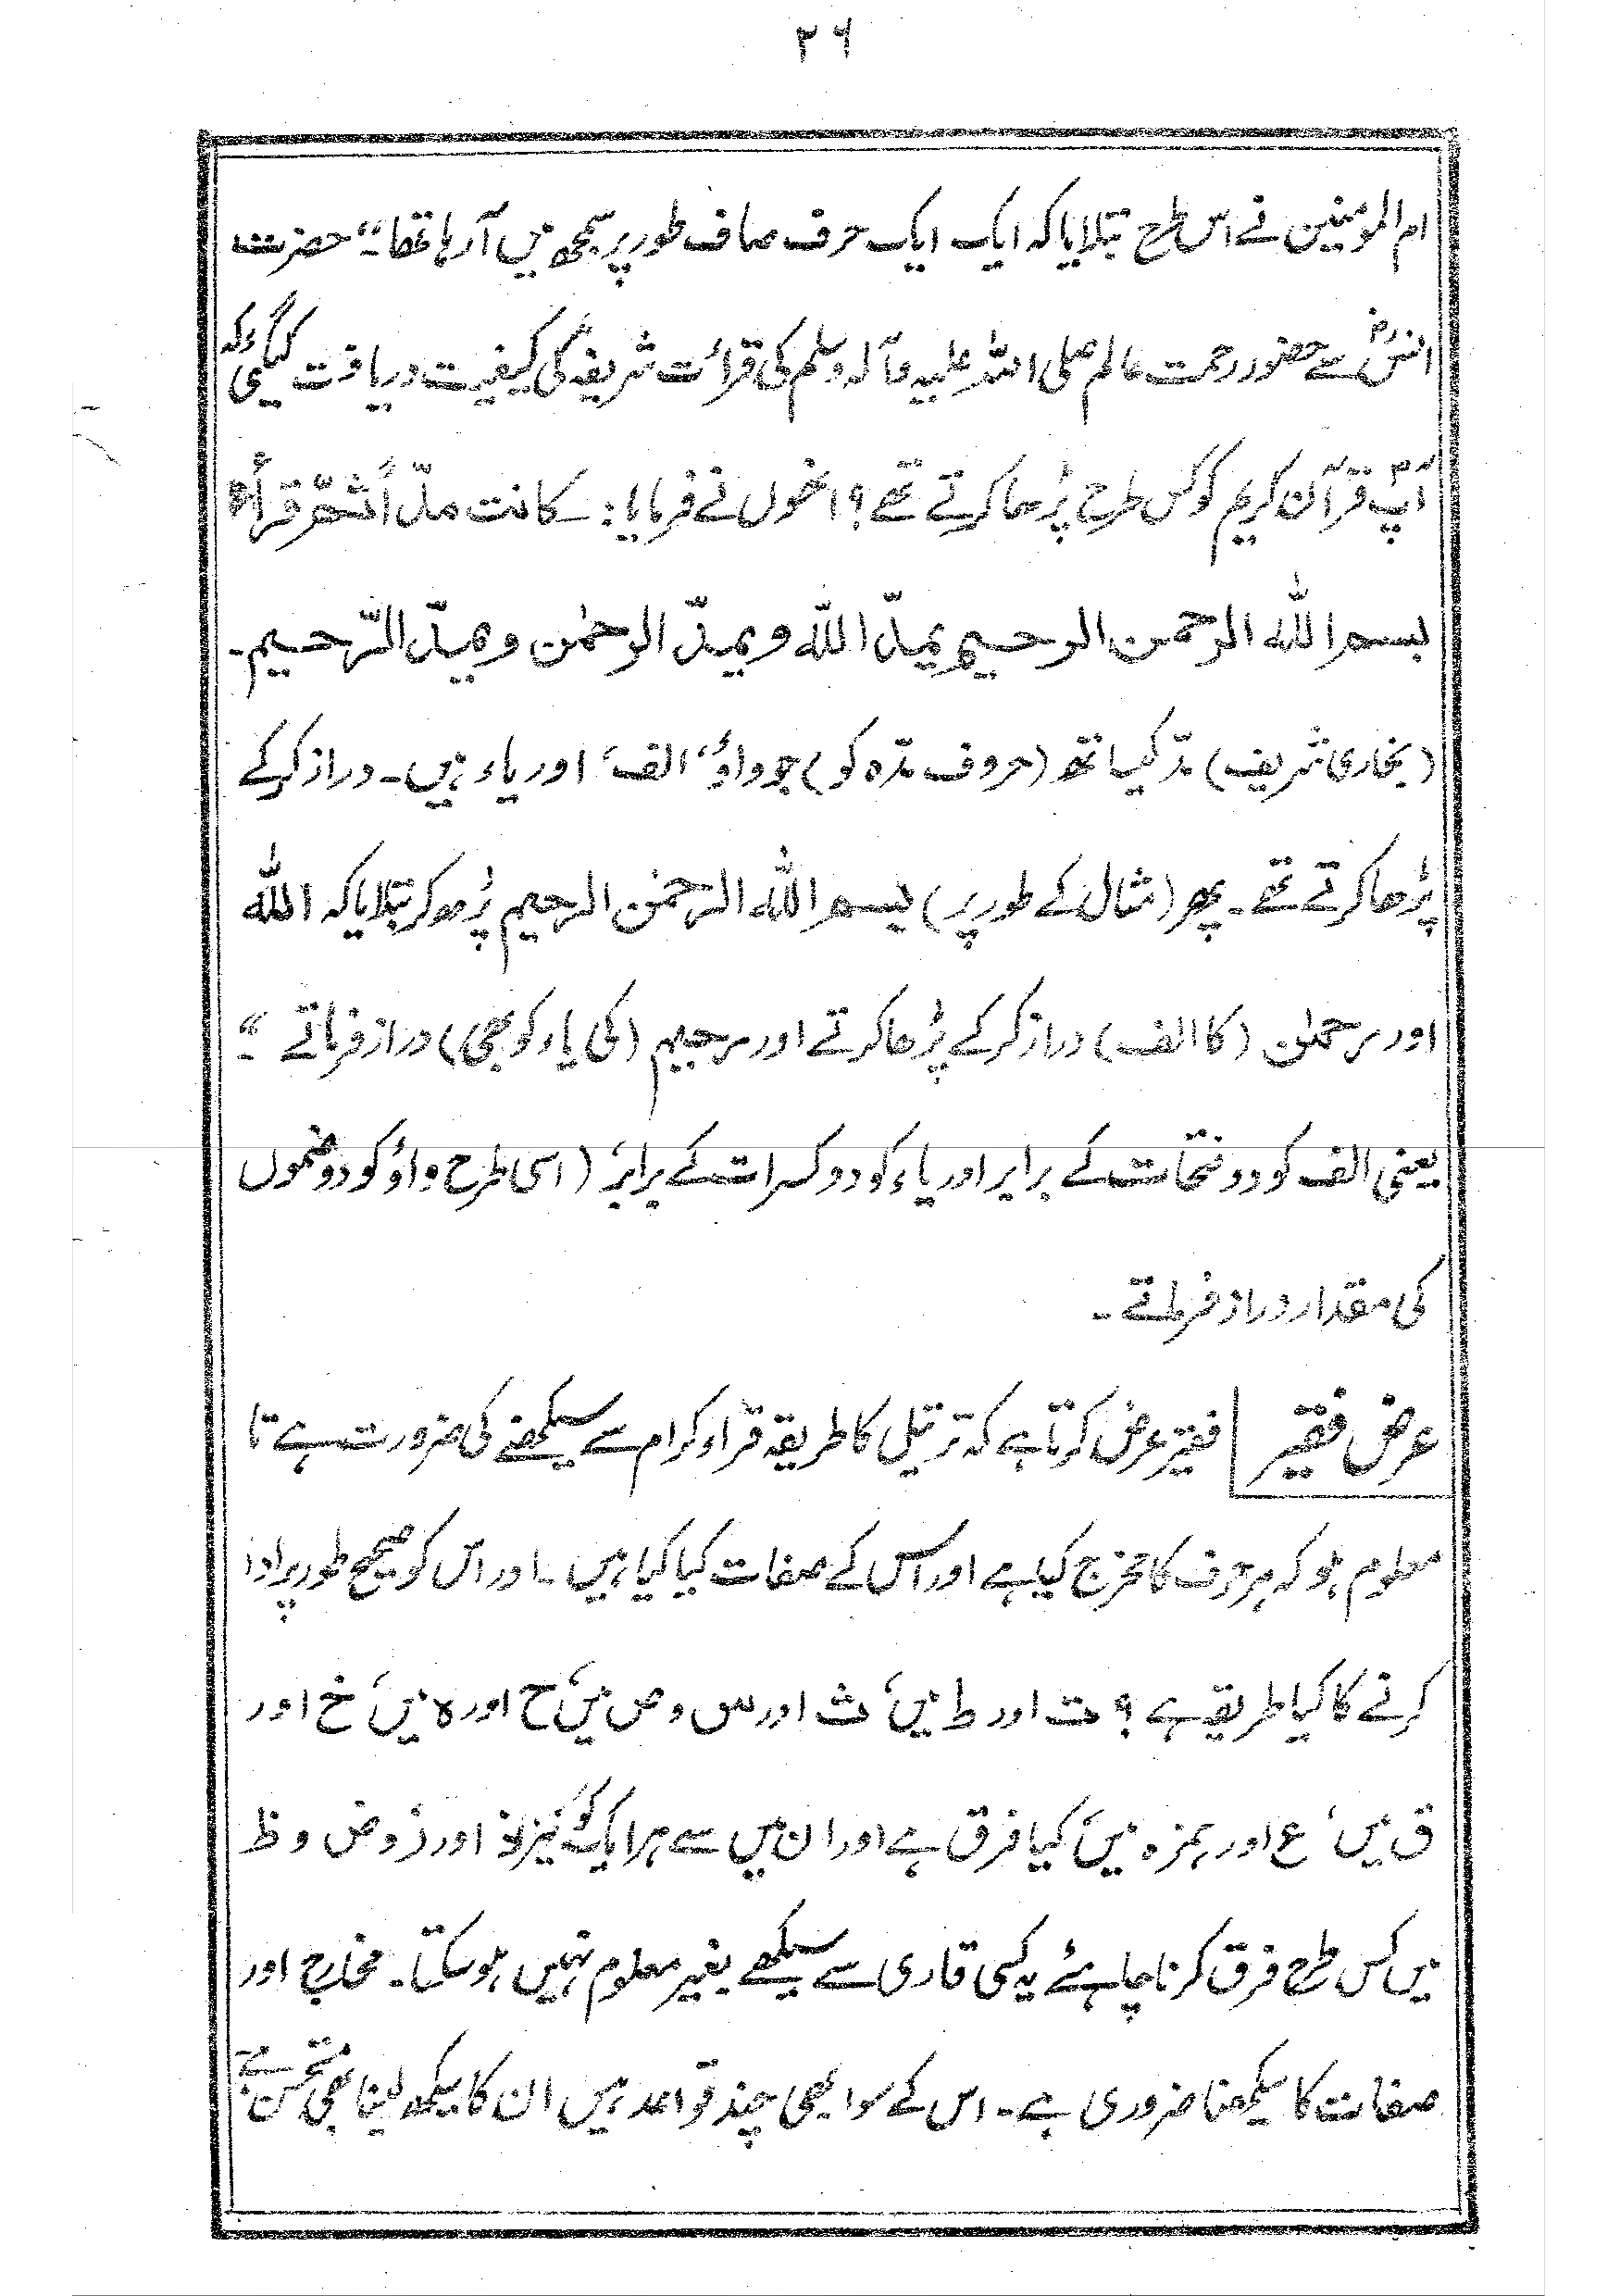 ۲۶
ام المومنین نے اس طرح بتلایا کہ ایک ایک حرف صاف طور پر سمجھ میں آرہا تھا۔“ حضرت
انسؓ سے حضور رحمت عالم صلی اللہ علیہ وآلہ وسلم کی قرأت شریفہ کی کیفیت دریافت کی گئی کہ
آپؐ قرآن کریم کو کس طرح پڑھا کرتے تھے؟ انھوں نے فرمایا:۔ کانت مدّاً ثمّ قرأ
بسم اللہ الرحمن الرحیم یمدّ اللہ ویمدّ الرحمٰن ویمدّ الرّحیم۔
(بخاری شریف) مدّ کیساتھ (حروف مدّہ کو) جو واؤ، الف، اور یاء ہیں۔ دراز کرکے
پڑھا کرتے تھے۔ پھر (مثال کے طور پر) بسم اللہ الرّحمٰن الرحیم پڑھ کر بتلایا کہ اللہ
اور رحمٰن (کا الف) دراز کرکے پڑھا کرتے اور رحیم (کی یاء کو بھی) دراز فرماتے ۔“
یعنی الف کو دو فتحات کے برابر اور یاء کو دو کسرات کے برابر، (اسی طرح واؤ کو دو ضموں
کی مقدار دراز فرماتے۔
عرض فقیر فقیر عرض کرتا ہے کہ ترتیل کا طریقہ قرّاء کرام سے سیکھنے کی ضرورت ہے تا
معلوم ہو کہ ہر حرف کا مخرج کیا ہے اور اس کے صفات کیا کیا ہیں۔ اور اس کو صحیح طور پر ادا
کرنے کا کیا طریقہ ہے؟ ت اور ط میں، ث اور س و ص میں، ح اور ہ میں، خ اور
ق میں، ع اور ہمزہ میں، کیا فرق ہے اور ان میں سے ہر ایک کو نیز ذ اور ز و ض و ظ
میں کس طرح فرق کرنا چاہئے یہ کسی قاری سے سیکھے بغیر معلوم نہیں ہو سکتا۔ مخارج اور
صفات کا سیکھنا ضروری ہے۔ اس کے سوا بھی چند قواعد ہیں ان کا سیکھ لینا بھی مستحسن ہے۔